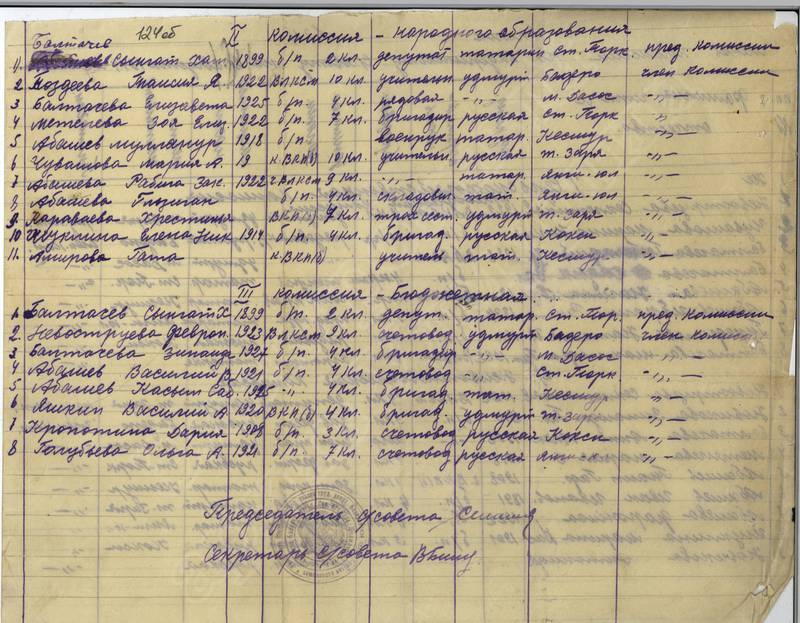 124об II комиссия - народного образования
Балтачев
1. Сынгат Хат 1899 б/п 2 кл. депутат татарин ст. Порк. пред. комиссии
2 Поздеева Таисия А. 1922 ВЛКСМ 10 кл. учительн. удмурт Бадеро член комиссии
3 Балтачева Елизавета 1925 б/п. 4 кл. рядовая -"- м. Васос -"-
4 Метелева Зоя Елиз. 1922 б/п. 7 кл. бригадир русская ст. Порк -"-
5 Абашев 1918 б/п. военрук татар. Кестыр -"-
6 Чувашова Мария А. 19 к ВКП(б) 10 кл. учительн. русская т. Заря -"-
7 Абашева Рабига Зак. 1922 ч ВЛКСМ 9 кл. -"- татар. Янги-юл -"-
8 Абашева б/п. 4 кл. складовщ. тат. Янги-юл -"-
9 Караваева Хрестинья ВКП(б) 7 кл. удмурт т. Заря -"-
10 Шуклина Елена Ник 1914 б/п 4 кл. бригад. русская Кокси -"-
11. Амирова Тата к ВКП(б) учитель тат. Кестыр. -"-
III комиссия - бюджетная
1. Балтачев Сынгат Х 1899 б/п 2 кл. депут. татар. ст. Пор. пред. комиссии
2. Невоструева Феврон. 1923 ВЛКСМ 9 кл. счетовод удмурт Бадеро член комисс
3 Балтачева Зинаид 1927 б/п. 4 кл. бригадир -"- м. Васос -"-
4 Абашев Василий В. 1921 б/п. 4 кл. счетовод ст. Порк. -"-
5 Абашев Касым 1925 -"- 4 кл. бригад. тат. Кестыр -"-
6 Яшкин Василий А 1920 ВКП(б) 4 кл. бригад. удмурт т. Заря -"-
7 Кропотина Дария 1908 б/п 3 кл. счетовод русская Кокси -"-
8 Голубьева Ольга А. 1921 б/п. 7 кл. счетовод русская Янги-ю -"-
Председатель с/совета
Секретарь с/совета